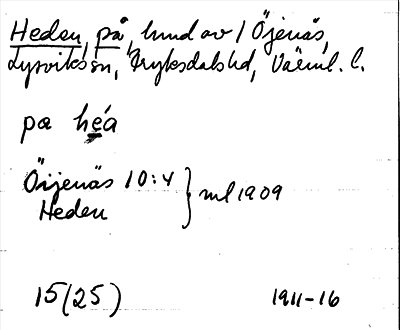 Heden, på, hmd av / Öjenäs,
Lysviks sn, Fryksdals hd, Värml. l.
pa héa
Öijenäs 10:4 } ml 1909
Heden
15(25) 1911-16